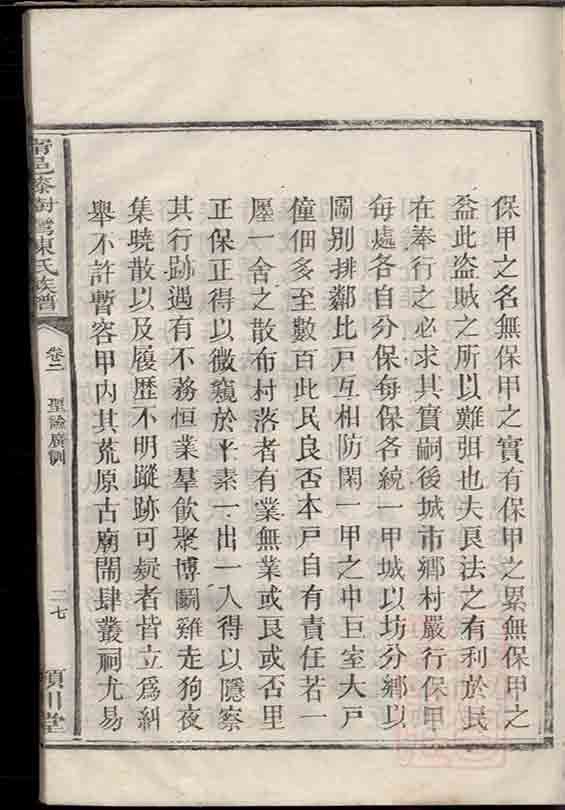 保甲之名無保甲之實有保甲之累無保甲之
益此盜賊之所以難弭也夫良法之有利於民
在奉行之必求其實嗣後城市鄉村嚴行保甲
每處各自分保每保各統一甲城以坊分鄉以
圖別排鄰比戸互相防閑一甲之中巨室大戸
僮佃多至數百此民良否本戸自有責任若一
廛一舍之散布村落者有業無業或良或否里
正保正得以微窺於平素一出一入得以隱察
其行跡遇有不務恒業羣飲聚博鬭雞走狗夜
集曉散以及履歷不明蹤跡可疑者皆立爲糾
舉不許暫容甲內其荒原古廟鬧肆叢祠尤易
甯邑漆樹灣陳氏族譜
卷二
聖諭廣訓
二七
潁川堂